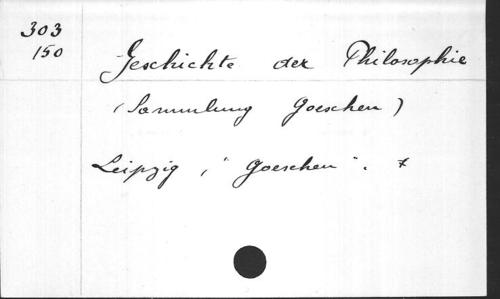 303
150
Geschichte der Philosophie
(Sammlung Goeschen)
Leipzig, "Goeschen". *